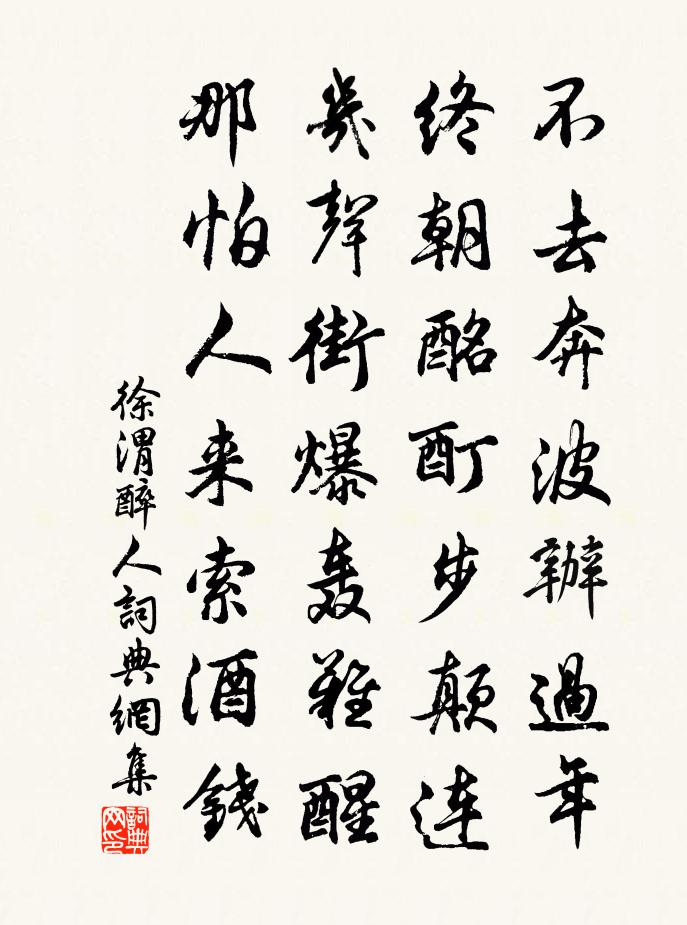 不去奔波辦過年
終朝酩酊步颠連
幾聲街爆轰難醒
那怕人来索酒錢
徐渭醉人詞典網集
詞典网印